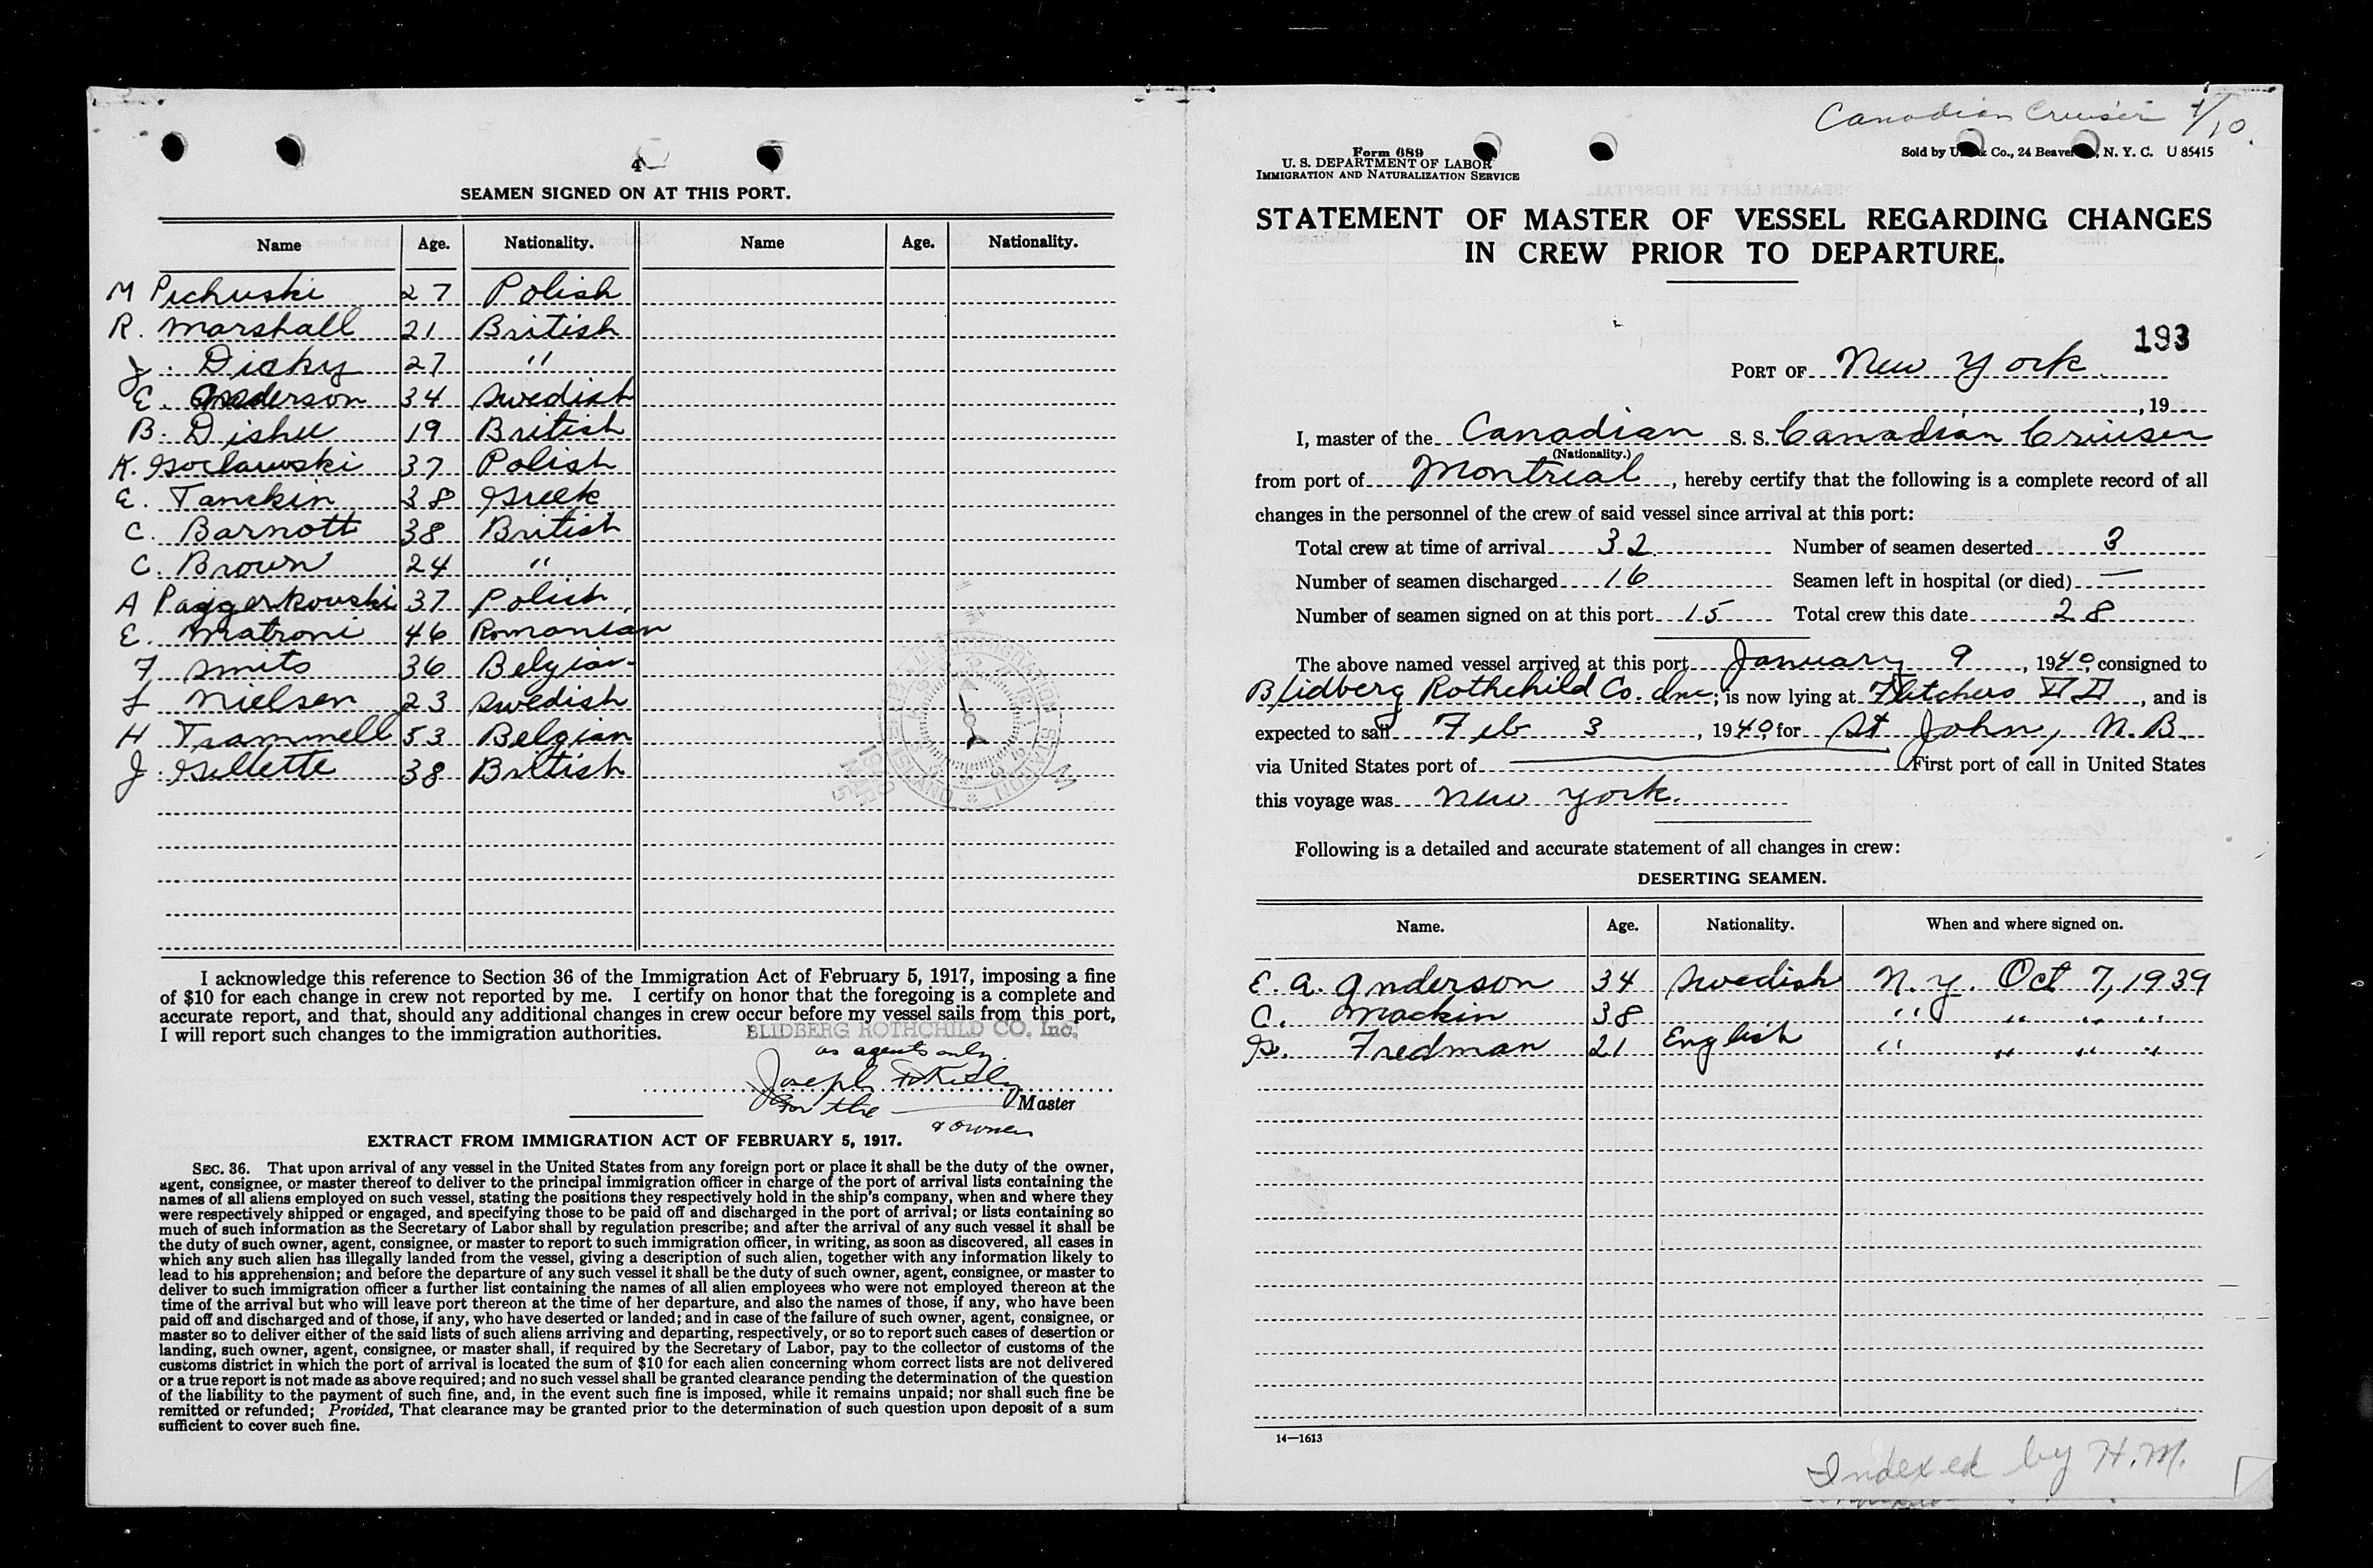 4
SEAMEN SIGNED ON AT THIS PORT.
Name Age. Nationality. Name Age. Nationality.
M Pichuski 27 Polish
R. Marshall 21 British
J. Dicky 27 "
E. Anderson 34 Swedish
B. Dishu 19 British
K. Goclawski 37 Polish
E. Tanckin 38 Greek
C. Barnott 38 British
C. Brown 24 "
A Paggerkowski 37 Polish
E. Matroni 46 Romanian
F Smits 36 Belgian
L Nielsen 23 Swedish
H Trammell 53 Belgian
J. Gillette 38 British
I acknowledge this reference to Section 36 of the Immigration Act of February 5, 1917, imposing a fine
of $10 for each change in crew not reported by me. I certify on honor that the foregoing is a complete and
accurate report, and that, should any additional changes in crew occur before my vessel sails from this port,
I will report such changes to the immigration authorities. BLIDBERG ROTHCHILD CO. Inc.
as agents only.
Joseph
For the Master
& owner
EXTRACT FROM IMMIGRATION ACT OF FEBRUARY 5, 1917.
SEC. 36. That upon arrival of any vessel in the United States from any foreign port or place it shall be the duty of the owner,
agent, consignee, or master thereof to deliver to the principal immigration officer in charge of the port of arrival lists containing the
names of all aliens employed on such vessel, stating the positions they respectively hold in the ship's company, when and where they
were respectively shipped or engaged, and specifying those to be paid off and discharged in the port of arrival; or lists containing so
much of such information as the Secretary of Labor shall by regulation prescribe; and after the arrival of any such vessel it shall be
the duty of such owner, agent, consignee, or master to report to such immigration officer, in writing, as soon as discovered, all cases in
which any such alien has illegally landed from the vessel, giving a description of such alien, together with any information likely to
lead to his apprehension; and before the departure of any such vessel it shall be the duty of such owner, agent, consignee, or master to
deliver to such immigration officer a further list containing the names of all alien employees who were not employed thereon at the
time of the arrival but who will leave port thereon at the time of her departure, and also the names of those, if any, who have been
paid off and discharged and of those, if any, who have deserted or landed; and in case of the failure of such owner, agent, consignee, or
master so to deliver either of the said lists of such aliens arriving and departing, respectively, or so to report such cases of desertion or
landing, such owner, agent, consignee, or master shall, if required by the Secretary of Labor, pay to the collector of customs of the
customs district in which the port of arrival is located the sum of $10 for each alien concerning whom correct lists are not delivered
or a true report is not made as above required; and no such vessel shall be granted clearance pending the determination of the question
of the liability to the payment of such fine, and, in the event such fine is imposed, while it remains unpaid; nor shall such fine be
remitted or refunded; Provided, That clearance may be granted prior to the determination of such question upon deposit of a sum
sufficient to cover such fine.
Canadian Cruiser 1/10.
Form 689
U. S. DEPARTMENT OF LABOR
IMMIGRATION AND NATURALIZATION SERVICE
Sold by Co., 24 Beaver N. Y. C. U 85415
STATEMENT OF MASTER OF VESSEL REGARDING CHANGES
IN CREW PRIOR TO DEPARTURE.
193
PORT OF New York
, 19
I, master of the Canadian S. S. Canadian Cruiser
(Nationality.)
from port of Montreal, hereby certify that the following is a complete record of all
changes in the personnel of the crew of said vessel since arrival at this port:
Total crew at time of arrival 32 Number of seamen deserted 3
Number of seamen discharged 16 Seamen left in hospital (or died) —
Number of seamen signed on at this port 15 Total crew this date 28
The above named vessel arrived at this port January 9, 1940, consigned to
Blidberg Rothchild Co. Inc; is now lying at Fletchers DD, and is
expected to sail Feb 3, 1940 for St John, N.B.
via United States port of First port of call in United States
this voyage was New York.
Following is a detailed and accurate statement of all changes in crew:
DESERTING SEAMEN.
Name. Age. Nationality. When and where signed on.
E. A. Anderson 34 Swedish N.Y. Oct 7, 1939
C. Mackin 38 " " " "
G. Fredman 21 English " " " "
14—1613
Indexed by H.M.